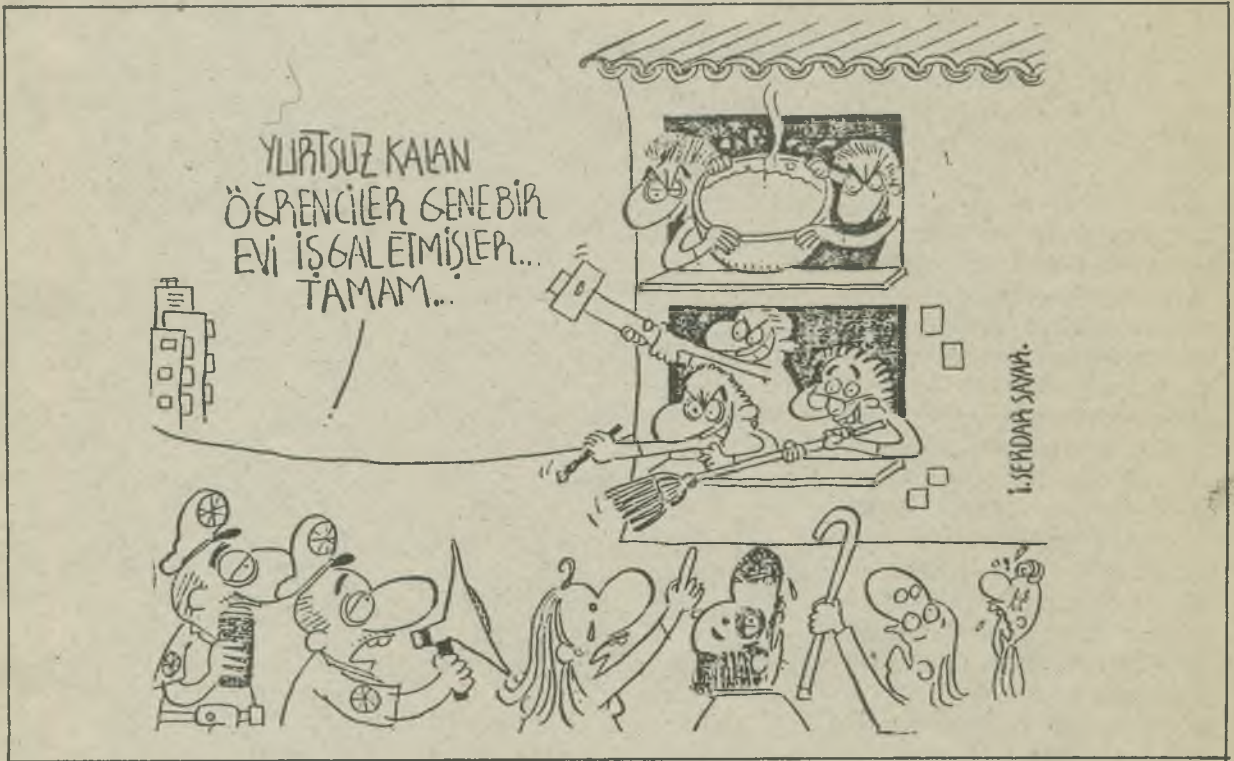 YURTSUZ KALAN
ÖĞRENCİLER GENE BİR
EVİ İŞGAL ETMİŞLER...
TAMAM...
İ. SERDAR SAYAR.